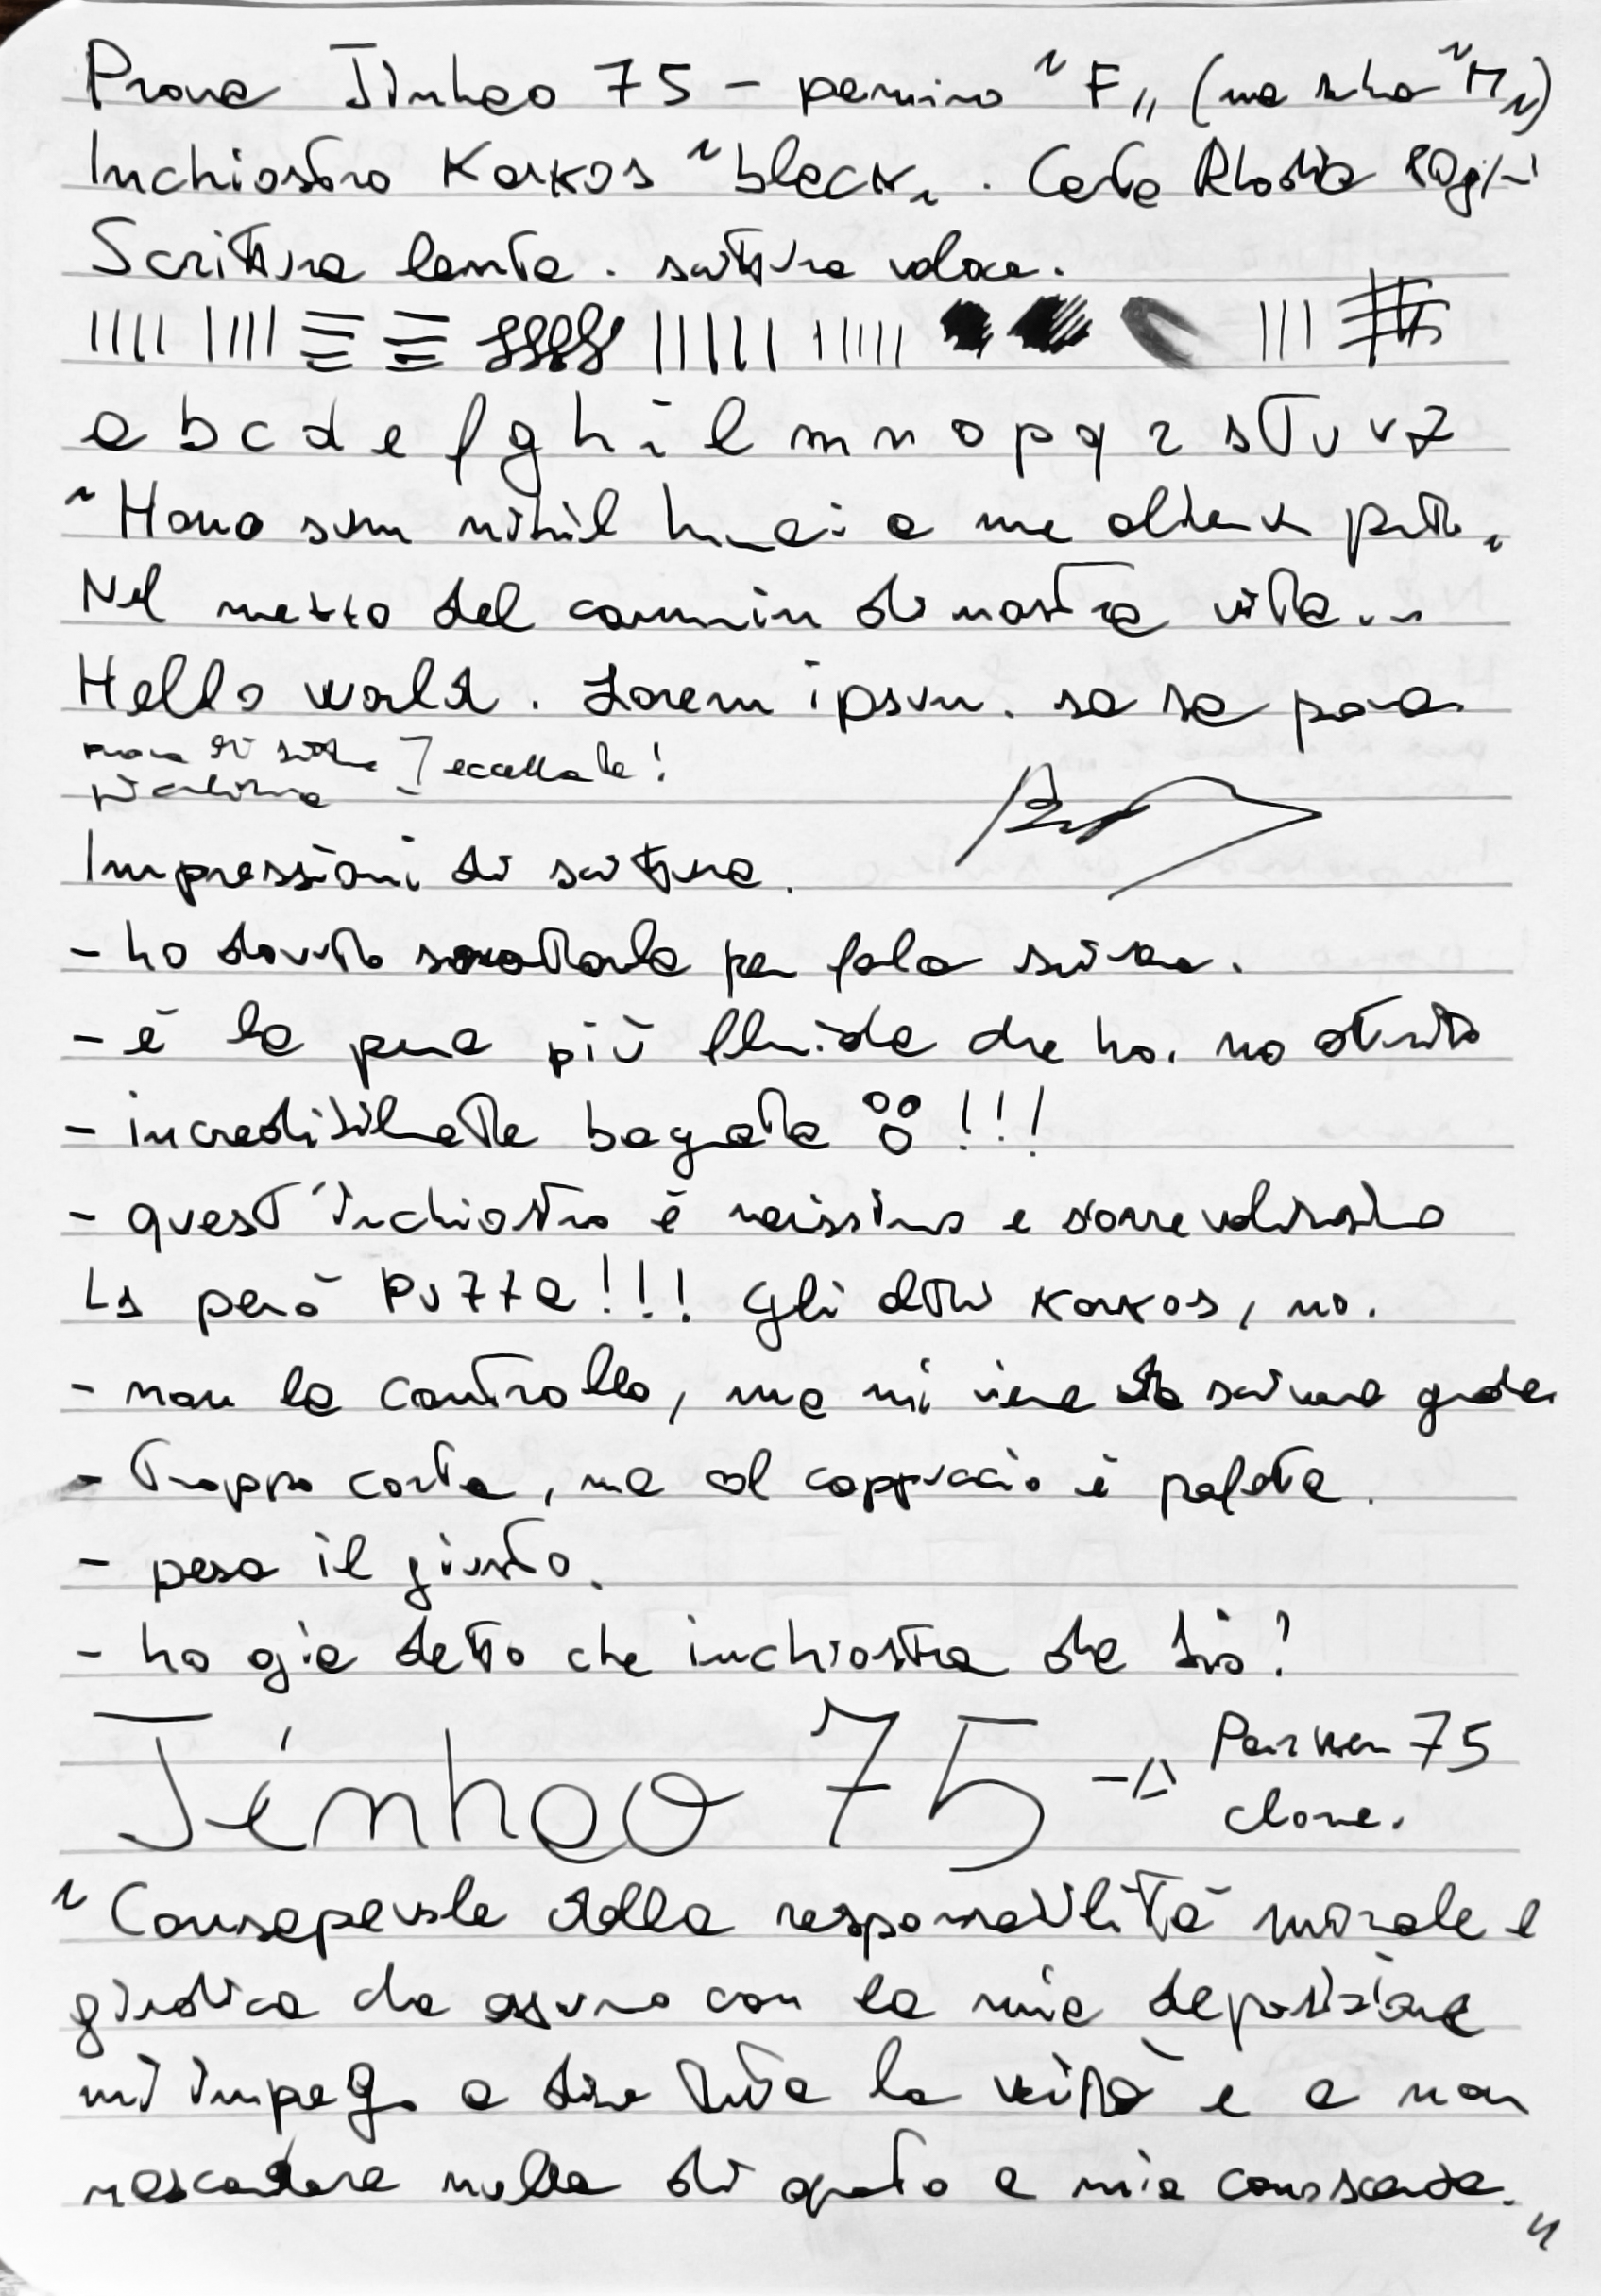 Prova Jinhao 75 - pennino "F" (ma scrive "M")
Inchiostro Karkos "black". Carta Rhodia 80g/m²
Scrittura lenta. scrittura veloce.
a b c d e f g h i l m n o p q r s t u v z
"Homo sum nihil humani a me alienum puto"
Nel mezzo del cammin di nostra vita...
Hello world. Lorem ipsum. sa se
prova di scrittura
piccolissima ] eccellente!
Impressioni di scrittura.
- ho dovuto scuoterla per farla scrivere.
- è la penna più fluida che ho. no attrito
- incredibilmente bagnata !!!
- quest'inchiostro è nerissimo e scorrevolissimo
↳ però PUZZA!!! Gli altri Karkos, no.
- non la controllo, ma mi viene da scrivere grande.
- Troppo corta, ma col cappuccio è perfetta.
- pesa il giusto.
- ho già detto che inchiostra da Dio?
Jinhao 75 -> Parker 75
clone.
"Consapevole della responsabilità morale e
giuridica che assumo con la mia deposizione
mi impegno a dire tutta la verità e a non
nascondere nulla di quanto a mia conoscenza."